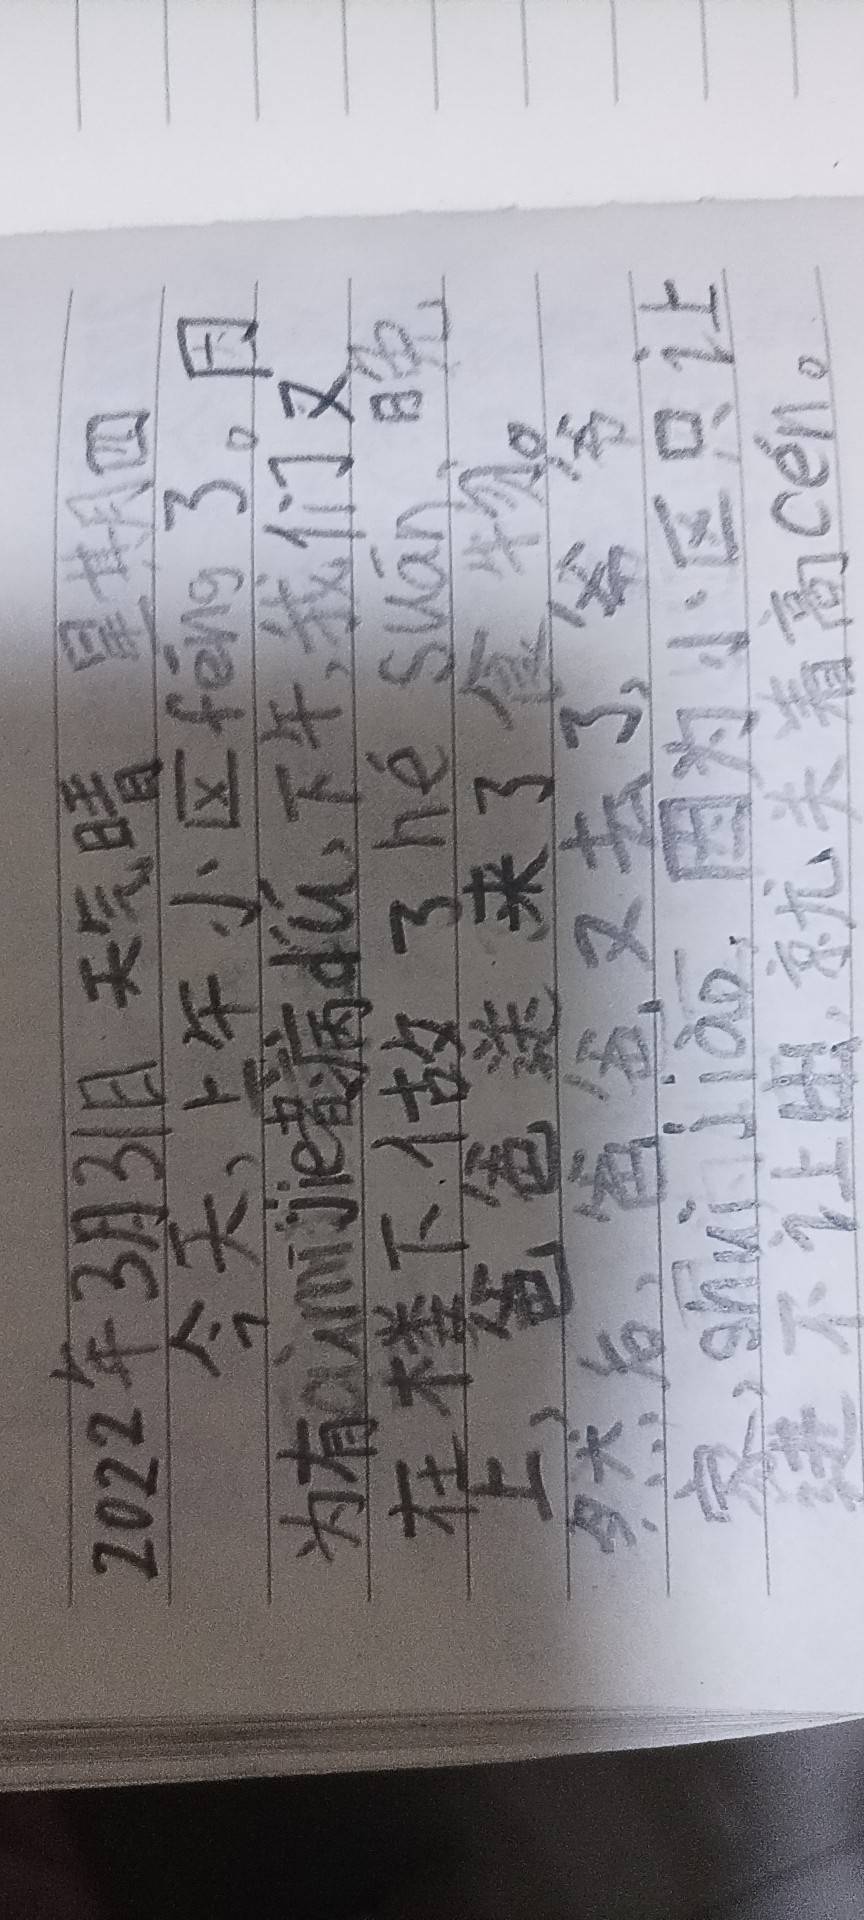 2022年3月31日 天气晴 星期四
今天，上午小区fēng了。因
为有àimìjiē病dú，下午，我们又
在楼下做了hé suān，晚
上，爸爸送来了食物。
然后，爸爸又去了，爸爸
家，shuìjiào，因为小区只让
进不让出，就关着高cén。